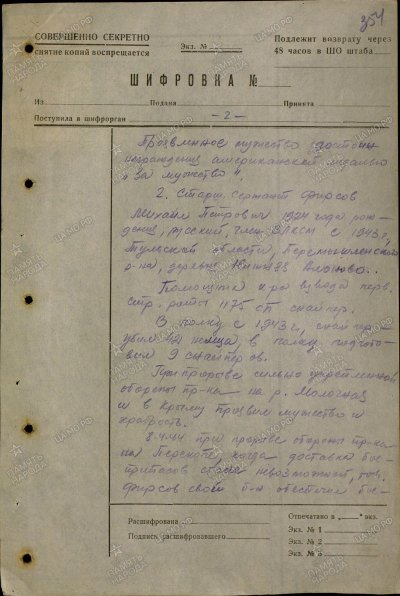 354
СОВЕРШЕННО СЕКРЕТНО
снятие копий воспрещается
Экз. №
Подлежит возврату через
48 часов в ШО штаба
ШИФРОВКА №
Из
Подана
Принята
Поступила в шифрорган
- 2 -
мужество достоин
награждения американской медалью
"За мужество".
2. Старш. сержант Фирсов
Михаил Петрович 1924 года рож-
дения, русский, член ВЛКСМ с 1943 г,
Тульской области, Перемышленского
р-на, деревня Нижнее
взвода
роты 1175 сп снайпер.
В полку с 1943 г, снайпер
убил 421 немца, в полку подгото-
вил 9 снайперов.
При прорыве сильно укрепленной
обороны пр-ка на р. Молочная
и в Крыму проявил мужество и
храбрость.
8.4.44 при прорыве обороны пр-ка
на Перекопе когда доставка бое-
припасов невозможной, тов.
Фирсов свой б-н обеспечил бое-
Расшифрована
Подпись расшифровавшего
Отпечатано в „ “ экз.
Экз. № 1
Экз. № 2
Экз. № 3
ПАМЯТЬ НАРОДА
ЦАМО.РФ